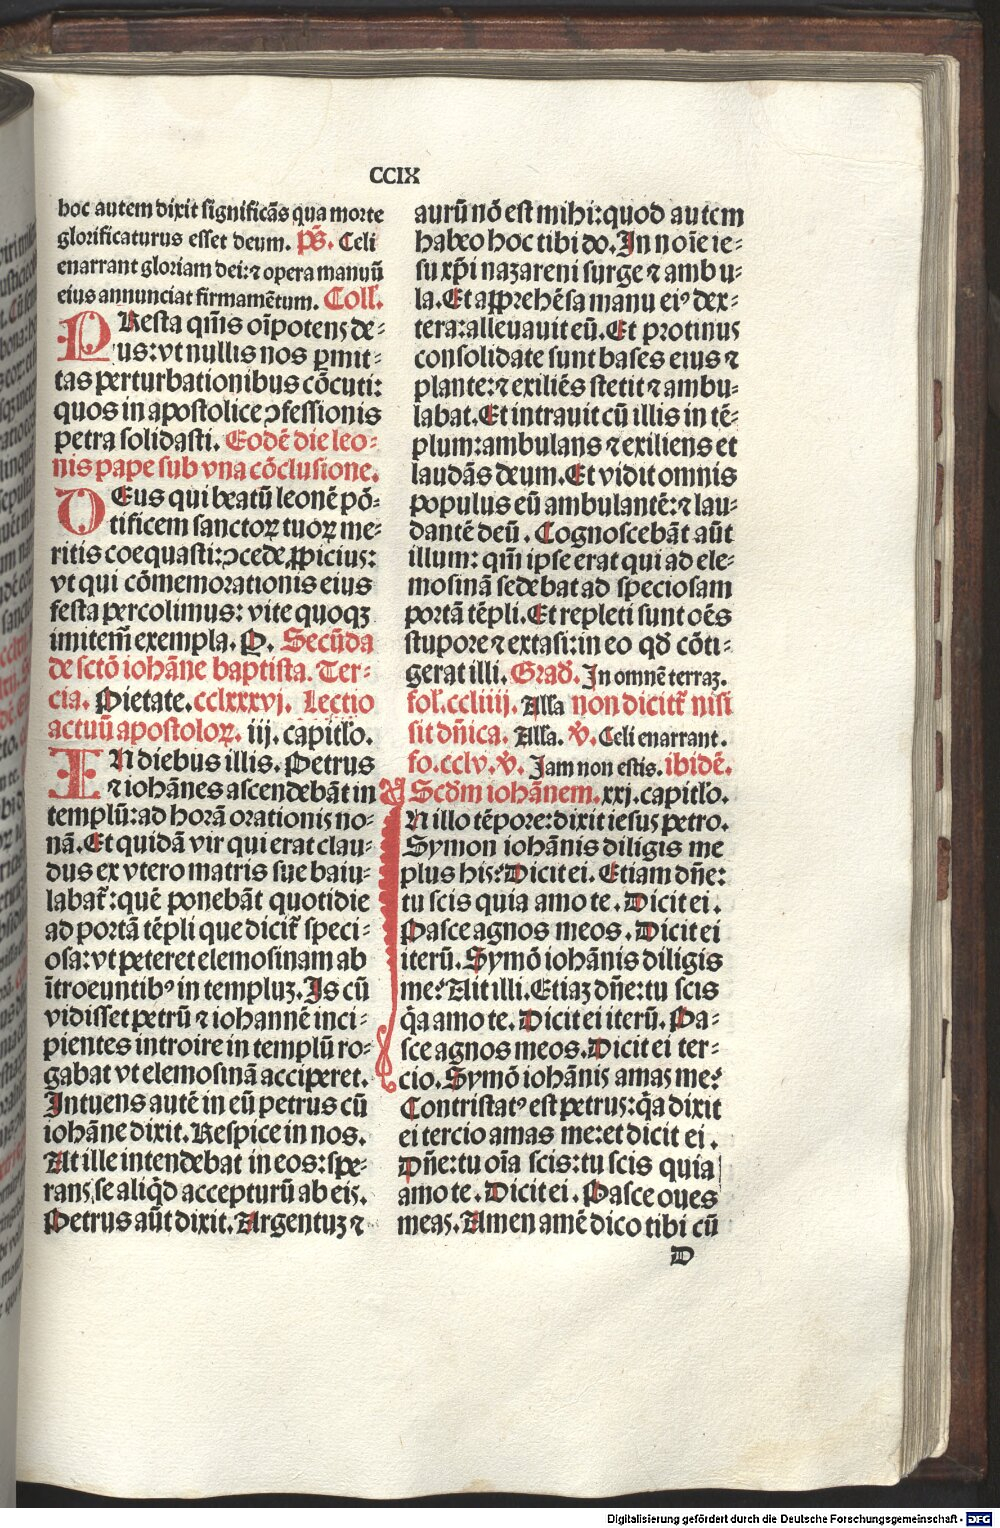 CCIX
hoc autem dixit significãs qua morte
glorificaturus esset deum. p̃s. Celi
enarrant gloriam dei: ⁊ opera manuũ
eius annunciat firmamẽtum. Coll̃.
PResta qm̃s oĩpotens de⸗
us: vt nullis nos ꝑmit⸗
tas perturbationibus cõcuti:
quos in apostolice ꝯfessionis
petra solidasti. Eodẽ die leo⸗
nis pape sub vna cõclusione.
DEus qui beatũ leonẽ põ⸗
tificem sanctoꝝ tuoꝝ me⸗
ritis coequasti: ꝯcede ꝓpicius:
vt qui cõmemorationis eius
festa percolimus: vite quoqꝫ
imitem̃ exempla. P. Secũda
de sctõ iohãne baptista. Ter⸗
cia. Pietate. cclxxxvj. Lectio
actuũ apostoloꝝ. iij. capitl̃o.
IN diebus illis. Petrus
⁊ iohãnes ascendebãt in
templũ: ad horã orationis no⸗
nã. Et quidã vir qui erat clau⸗
dus ex vtero matris sue baiu⸗
labat̃: quẽ ponebãt quotidie
ad portã tẽpli que dicit̃ speci⸗
osa: vt peteret elemosinam ab
ĩtroeuntibꝰ in templuꝫ. Is cũ
vidisset petrũ ⁊ iohannẽ inci⸗
pientes introire in templũ ro⸗
gabat vt elemosinã acciperet.
Intuens autẽ in eũ petrus cũ
iohãne dixit. Respice in nos.
At ille intendebat in eos: spe⸗
rans se aliq̃d accepturũ ab eis.
Petrus aũt dixit. Argentuꝫ ⁊
aurũ nõ est mihi: quod autem
habeo hoc tibi do. In noĩe ie⸗
su xp̃i nazareni surge ⁊ ambu⸗
la. Et apprehẽsa manu eiꝰ dex⸗
tera: alleuauit eũ. Et protinus
consolidate sunt bases eius ⁊
plante: ⁊ exiliẽs stetit ⁊ ambu⸗
labat. Et intrauit cũ illis in tẽ⸗
plum: ambulans ⁊ exiliens et
laudãs deum. Et vidit omnis
populus eũ ambulantẽ: ⁊ lau⸗
dantẽ deũ. Cognoscebãt aũt
illum: qm̃ ipse erat qui ad ele⸗
mosinã sedebat ad speciosam
portã tẽpli. Et repleti sunt oẽs
stupore ⁊ extasi: in eo qd̃ cõti⸗
gerat illi. Grad̃. In omnẽ terraꝫ.
fol̃. ccliiij. All̃a non dicit̃ nisi
sit dñica. All̃a. v̾. Celi enarrant.
fo. cclv. v̾. Jam non estis. ibidẽ.
Scd̃m iohãnem. xxj. capitl̃o.
IN illo tẽpore: dixit iesus petro.
Symon iohãnis diligis me
plus his? Dicit ei. Etiam dñe:
tu scis quia amo te. Dicit ei.
Pasce agnos meos. Dicit ei
iterũ. Symõ iohãnis diligis
me? Ait illi. Etiaꝫ dñe: tu scis
q̃a amo te. Dicit ei iterũ. Pa⸗
sce agnos meos. Dicit ei ter⸗
cio. Symõ iohãnis amas me?
Contristatꝰ est petrus: q̃a dixit
ei tercio amas me: et dicit ei.
Dñe: tu oĩa scis: tu scis quia
amo te. Dicit ei. Pasce oues
meas. Amen amẽ dico tibi cũ
D
Digitalisierung gefördert durch die Deutsche Forschungsgemeinschaft - DFG